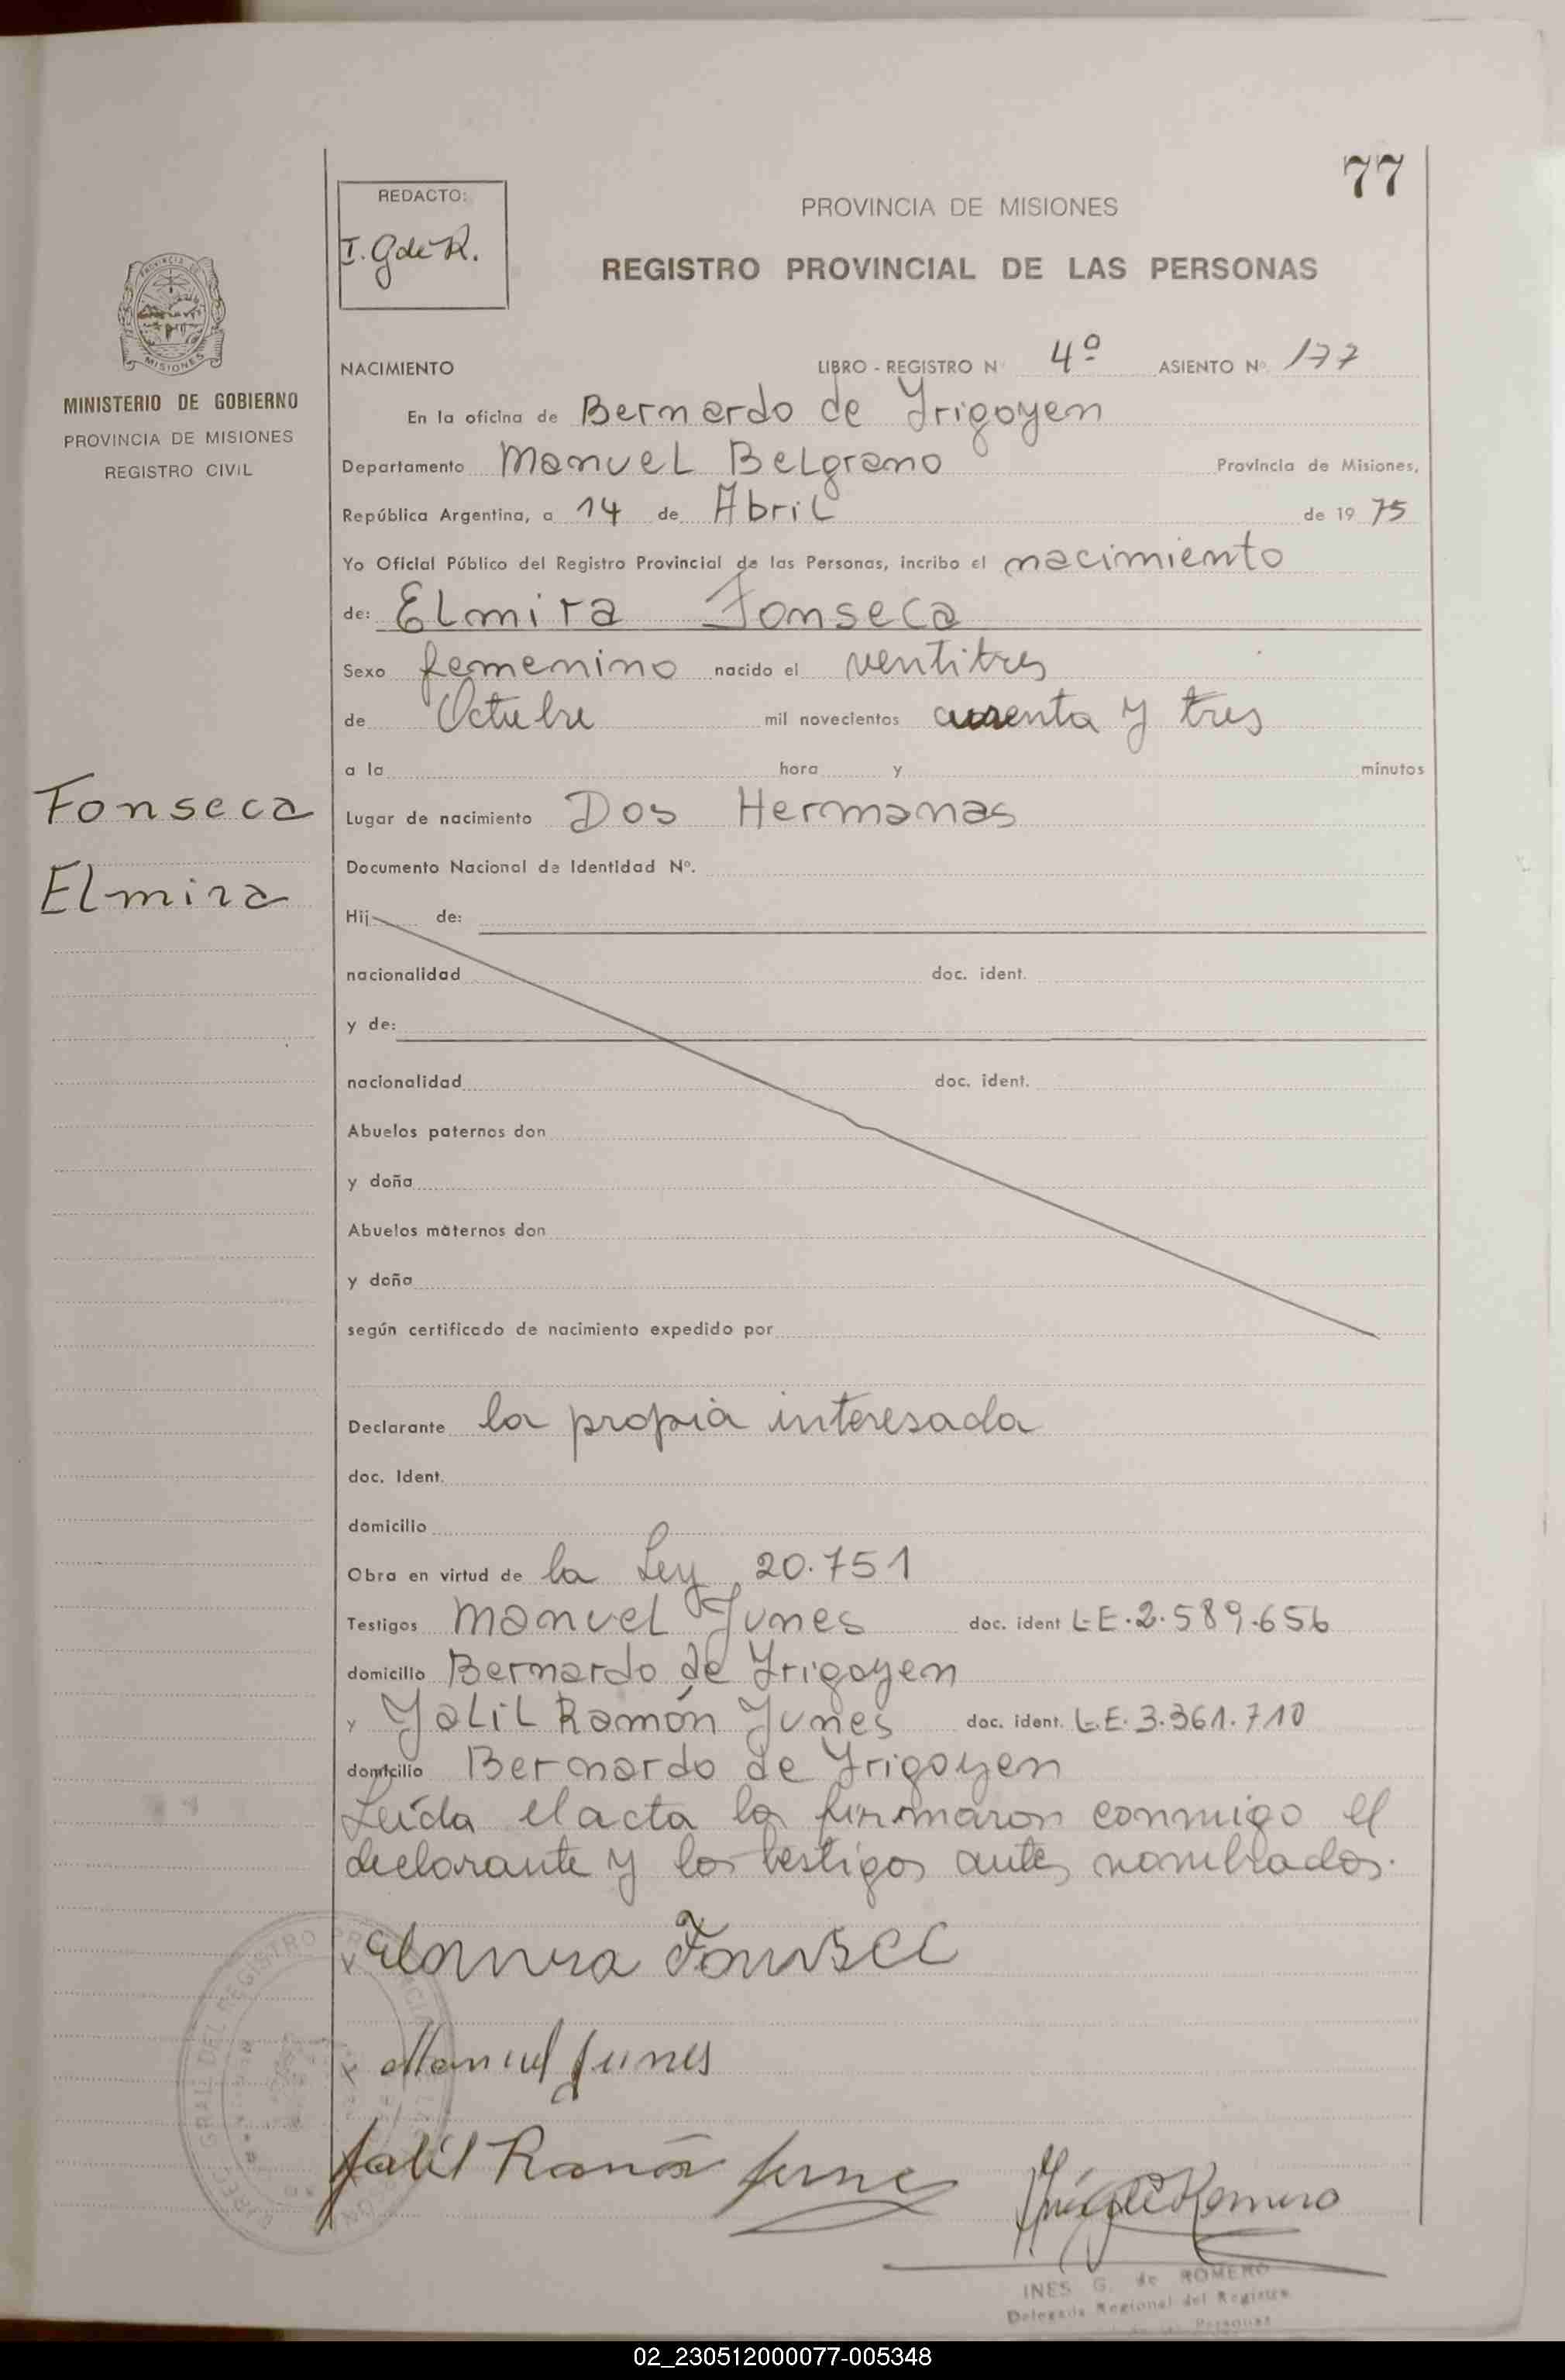 77
REDACTO:
I. G de R.
PROVINCIA DE MISIONES
REGISTRO PROVINCIAL DE LAS PERSONAS
PROVINCIA DE
MISIONES
MINISTERIO DE GOBIERNO
PROVINCIA DE MISIONES
REGISTRO CIVIL
NACIMIENTO LIBRO - REGISTRO Nº 4º ASIENTO Nº 177
En la oficina de Bernardo de Yrigoyen
Departamento Manuel Belgrano Provincia de Misiones,
República Argentina, a 14 de Abril de 1975
Yo Oficial Público del Registro Provincial de las Personas, incribo el nacimiento
de: Elmira Fonseca
Sexo femenino nacido el ventitres
de Octubre mil novecientos cuarenta y tres
a la hora y minutos
Fonseca
Elmira
Lugar de nacimiento Dos Hermanas
Documento Nacional de Identidad Nº.
Hij de:
nacionalidad doc. ident.
y de:
nacionalidad doc. ident.
Abuelos paternos don
y doña
Abuelos maternos don
y doña
según certificado de nacimiento expedido por
Declarante la propia interesada
doc. Ident.
domicilio
Obra en virtud de la Ley 20.751
Testigos Manuel Yunes doc. ident L.E.2.589.656
domicilio Bernardo de Yrigoyen
y Yalil Ramón Yunes doc. ident. L.E.3.361.710
domicilio Bernardo de Yrigoyen
Leída el acta la firmaron conmigo el
declarante y los testigos antes nombrados.
x Elmira Fonsec
x Manuel Junes
Jalil Ramón Junes
Inés G de Romero
INES G. de ROMERO
Delegada Regional del Registro
de las Personas
02_230512000077-005348